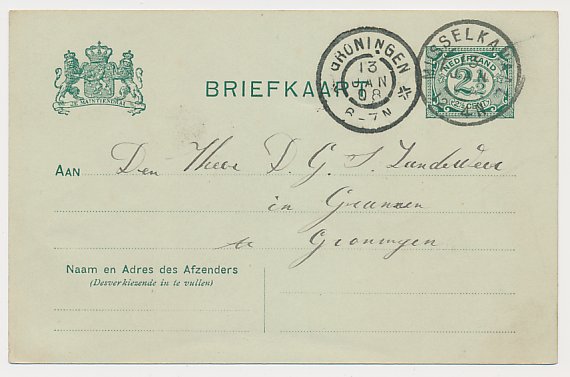 JE MAINTIENDRAI
BRIEFKAART
GRONINGEN
13 JAN 08
6-7N
MUSSELKANAAL
NEDERLAND
2½
CENT
AAN Den Heer D. G. S.
in Granen
te Groningen
Naam en Adres des Afzenders
(Desverkiezende in te vullen)